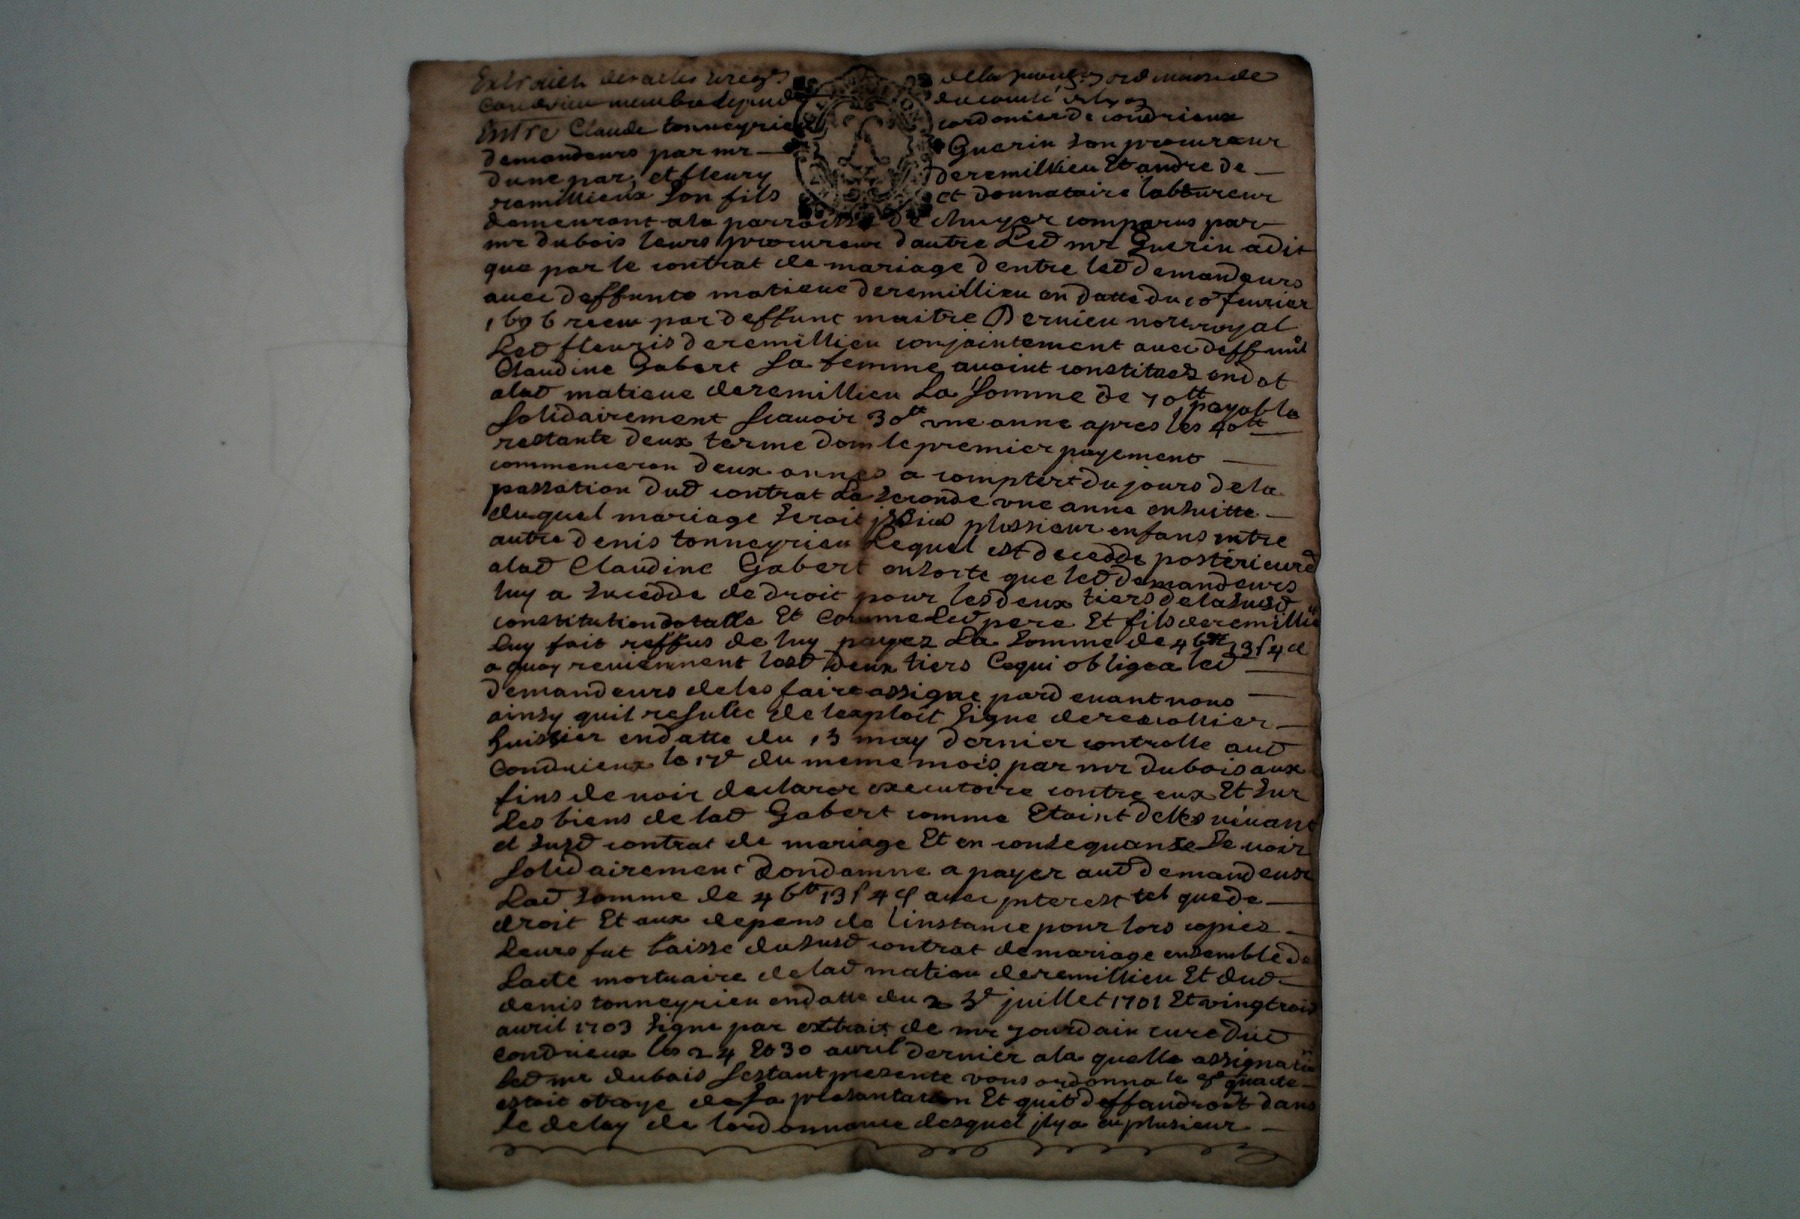 Extraict des actes de la ordinaire de
Condrieu membre du comté
Entre Claude tonneyrieu cordonier de condrieux
demandeurs par mr Guerin son procureur
dune par, et fleury deremillieu Et andre de
remillieux son fils et donnataire laboureur
demeurant ala parroisse de chuyer comparus par
mr dubois leurs procureur dautre Led mr Guerin adit
que par le contrat de mariage dentre led demandeurs
avec deffunte matieue deremillieu en datte du 10e fevrier
1696 receu par deffunt maitre Dervieu notre royal
Led fleuris deremillieu conjaintement avec deffunte
Claudine Gabert sa femme avoint constitues en dot
alad matieue deremillieu La somme de 70tt payable
solidairement scavoir 30tt une anne apres les 40tt
restante deux terme dom le premier payement
commenceron deux annes a compter du jours de la
passation dud contrat La seconde une anne ensuitte
du quel mariage seroit plussieur enfans entre
autre denis tonneyrieu Lequel est decedde posterieured
alad Claudine Gabert ensorte que led demandeurs
luy a succedde de droit pour les deux tiers de la susd
constitution dotalle Et comme Led pere Et fils deremillieu
Luy fait reffus de luy payez La somme de 46tt 13s 4d
a quoy reviennent lesd deux tiers Cequi obligea led
demandeurs de les faire assigne pardevant nous
ainsy quil resulte de lexploit signe derecollier
huissier endatte du 13 may dernier controlle aud
Condrieux le 17e du meme mois par mr dubois aux
fins de voir declarer executoire contre eux Et sur
Les biens de lad Gabert comme Etoint delles vivant
et susd contrat de mariage Et en consequance se voir
solidairement Condamne a payer aud demandeurs
Lad somme de 46tt 13s 4d avec interest tel que de
droit Et aux depens de linstance pour lors copies
Leurs fut laisse du susd contrat de mariage ensemble de
Lacte mortuaire de lad matieu deremillieu Et dud
denis tonneyrieu endatte du 23e juillet 1701 Et vingtrois
avril 1703 signe par extrait de mr jourdain cure dud
condrieux les 24 Et 30 avril dernier ala quelle assignation
led mr dubois sestant presente vous ordonna le quacte
estoit otroye de sa presantation Et quil deffandroit dans
Le delay de lordonnance desquel jlya eu plusieur